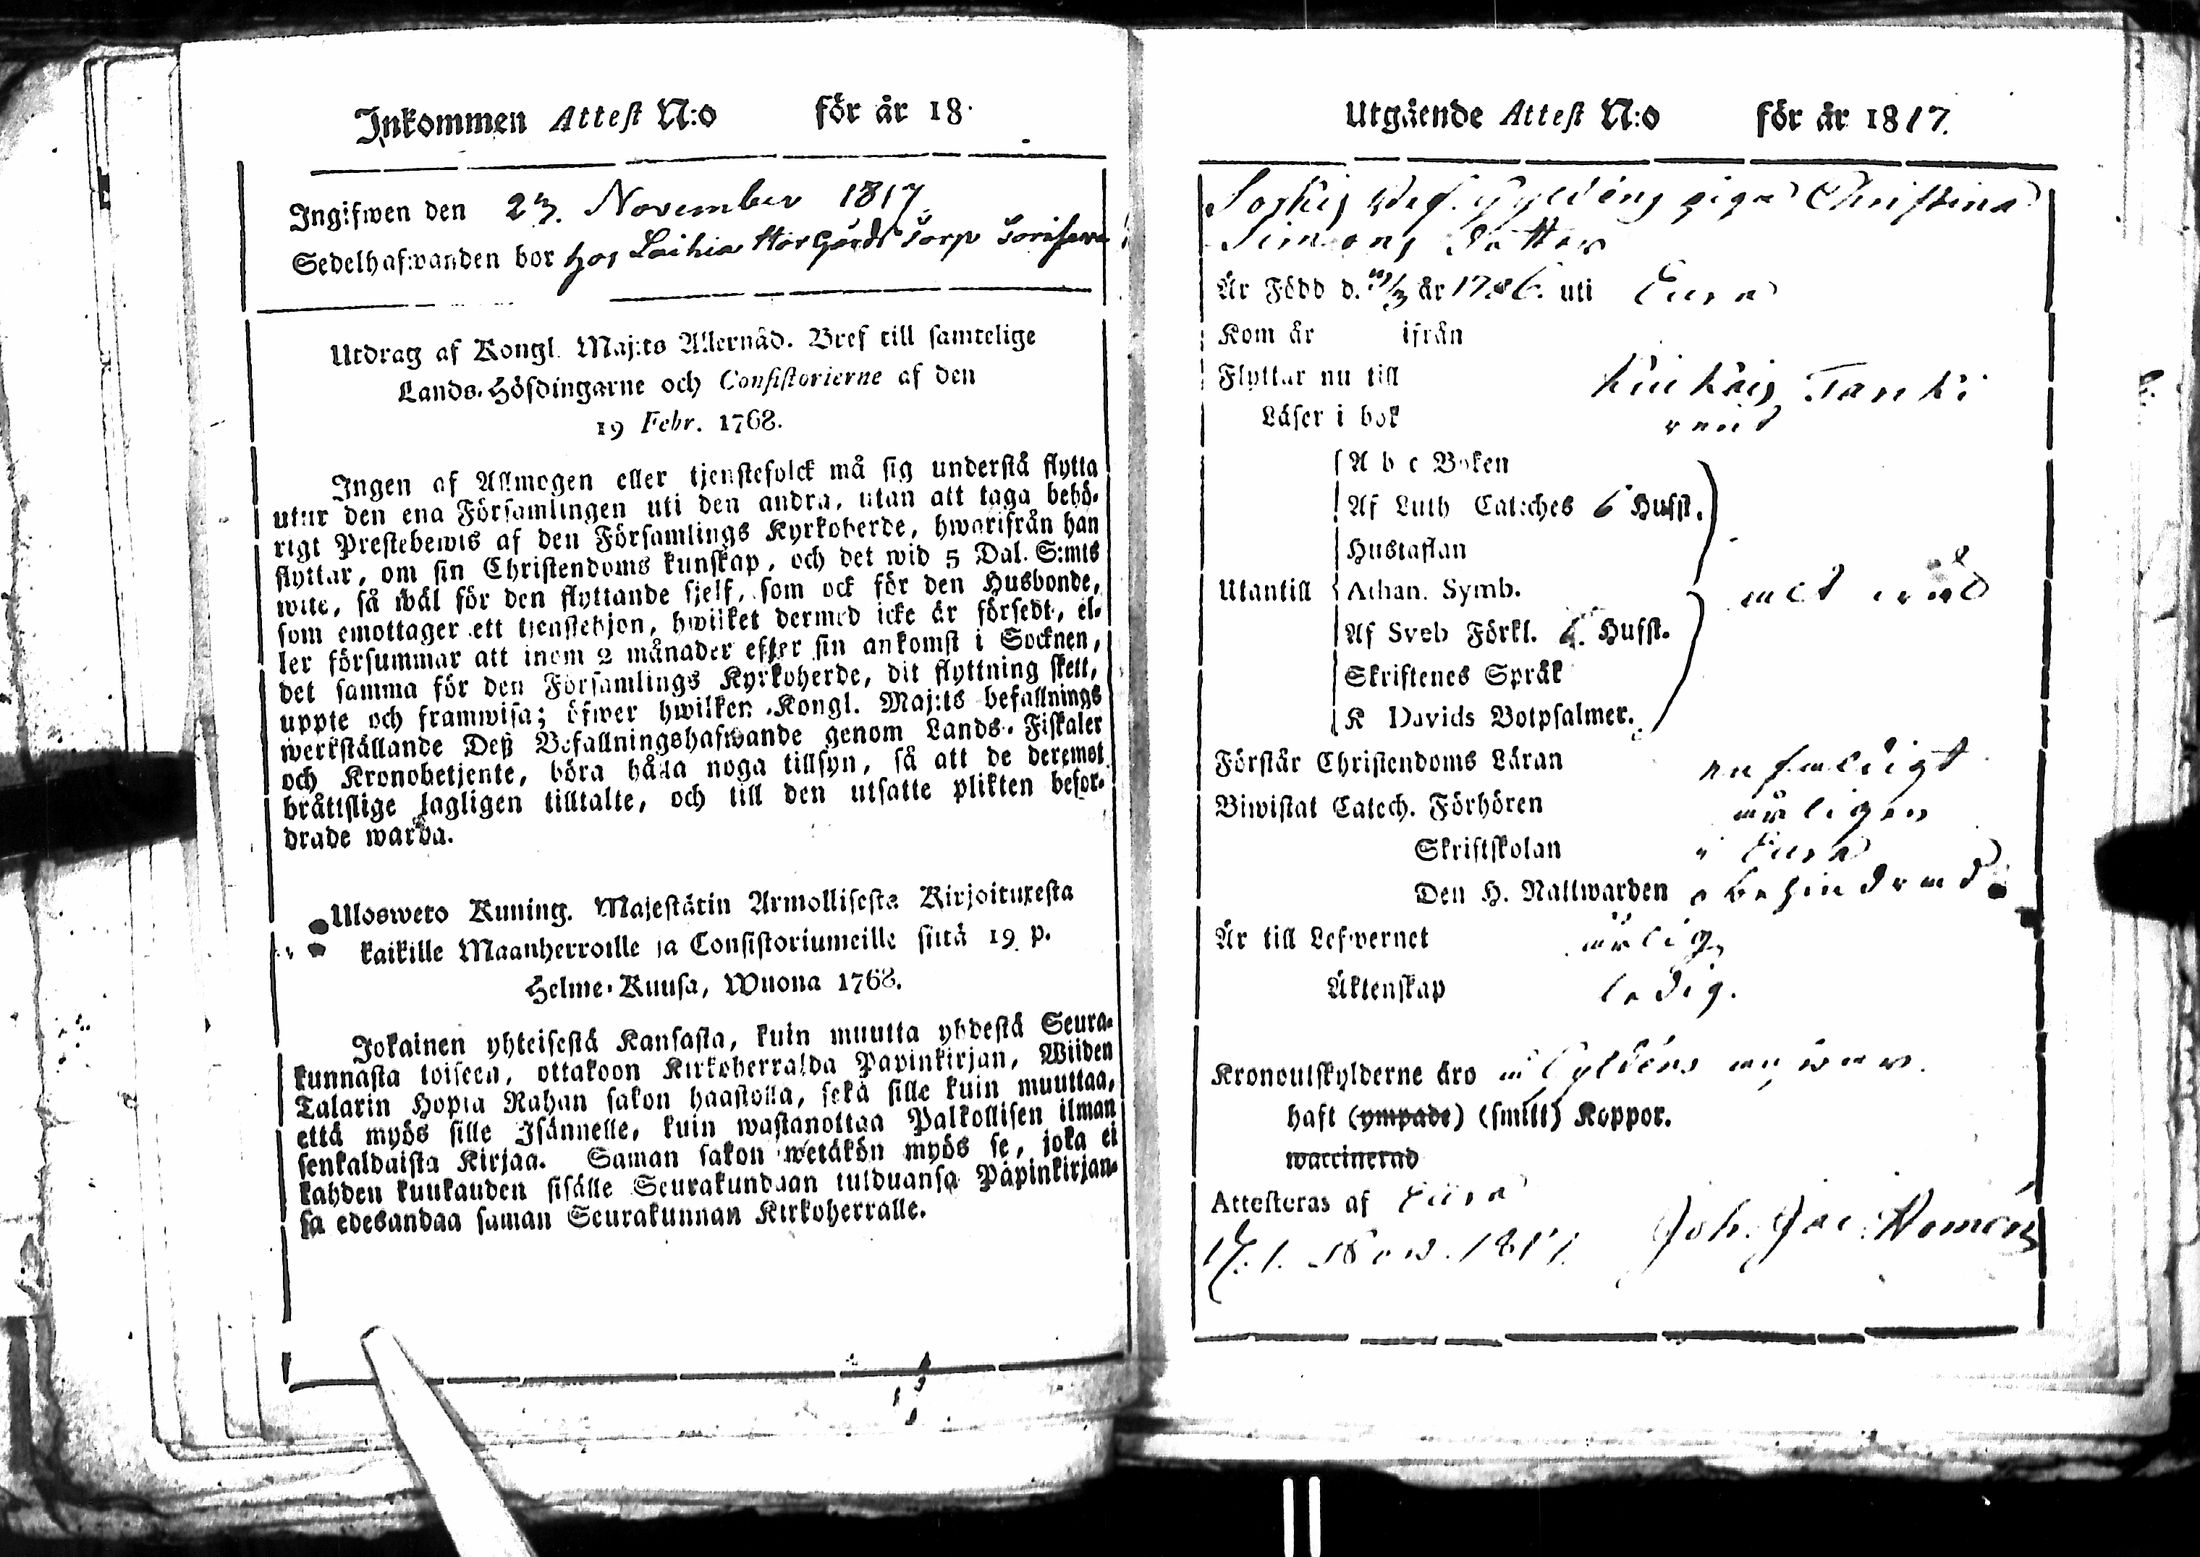 Inkommen Attest N:o för år 18
Ingifwen den 23. November 1817.
Sedelhafwanden bor hos Laihia Torp
Utdrag af Kongl. Maj:ts Allernåd. Bref till samtelige
Lands-Höfdingarne och Consistorierne af den
19 Febr. 1768.
Ingen af Allmogen eller tjenstefolck må sig understå flytta
utur den ena Församlingen uti den andra, utan att taga behö-
rigt Prestebewis af den Församlings Kyrkoherde, hwarifrån han
flyttar, om sin Christendoms kunskap, och det wid 5 Dal. S:mts
wite, så wäl för den flyttande sjelf, som ock för den Husbonde,
som emottager ett tjenstehjon, hwilket dermed icke är försedt, el-
ler försummar att inom 2 månader efter sin ankomst i Socknen,
det samma för den Församlings Kyrkoherde, dit flyttning skett,
uppte och framwisa; öfwer hwilken Kongl. Maj:ts befallnings
werkställande Deß Befallningshafwande genom Lands-Fiskaler
och Kronobetjente, böra hålla noga tillsyn, så att de deremot
bråttslige lagligen tilltalte, och till den utsatte plikten befor-
drade warda.
Uloswero Kuning. Majestätin Armollisesta Kirjoituxesta
kaikille Maanherroille ja Consistoriumeille siitä 19 p.
Helme-Kuusa, Wuona 1768.
Jokainen yhteisestä Kansasta, kuin muutta yhdestä Seura-
kunnasta toiseen, ottakoon Kirkoherralda Papinkirjan, Wiiden
Talarin Hopia Rahan sakon haastolla, sekä sille kuin muuttaa,
että myös sille Isännelle, kuin wastanottaa Palkollisen ilman
senkaldaista Kirjaa. Saman sakon wetäkön myös se, joka ei
kahden kuukauden sisälle Seurakundaan tulduansa Papinkirjan-
sa edesandaa saman Seurakunnan Kirkoherralle.
Utgående Attest N:o för år 1817.
Gyldéns piga Christina
Simons dotter
Är Född d. år 1786. uti Eura
Kom år ifrån
Flyttar nu till
Läser i bok rent
A b c Boken
Af Luth Cateches 6 Hufst.
Hustaflan
Utantill Athan. Symb.
Af Sveb Förkl. 6 Hufst.
Skriftenes Språk
K Davids Botpsalmer.
Förstår Christendoms Läran enfaldigt
Biwistat Catech. Förhören årligen
Skriftskolan i Eura
Den H. Nattwarden obehindrad
Är till Lefwernet ärlig
Äktenskap ledig.
Kronoutskylderne äro Gyldéns
haft (ympade) (smitt) Koppor.
waccinerad
Attesteras af Eura
d. 1. Nov. 1817. Joh. Jac.